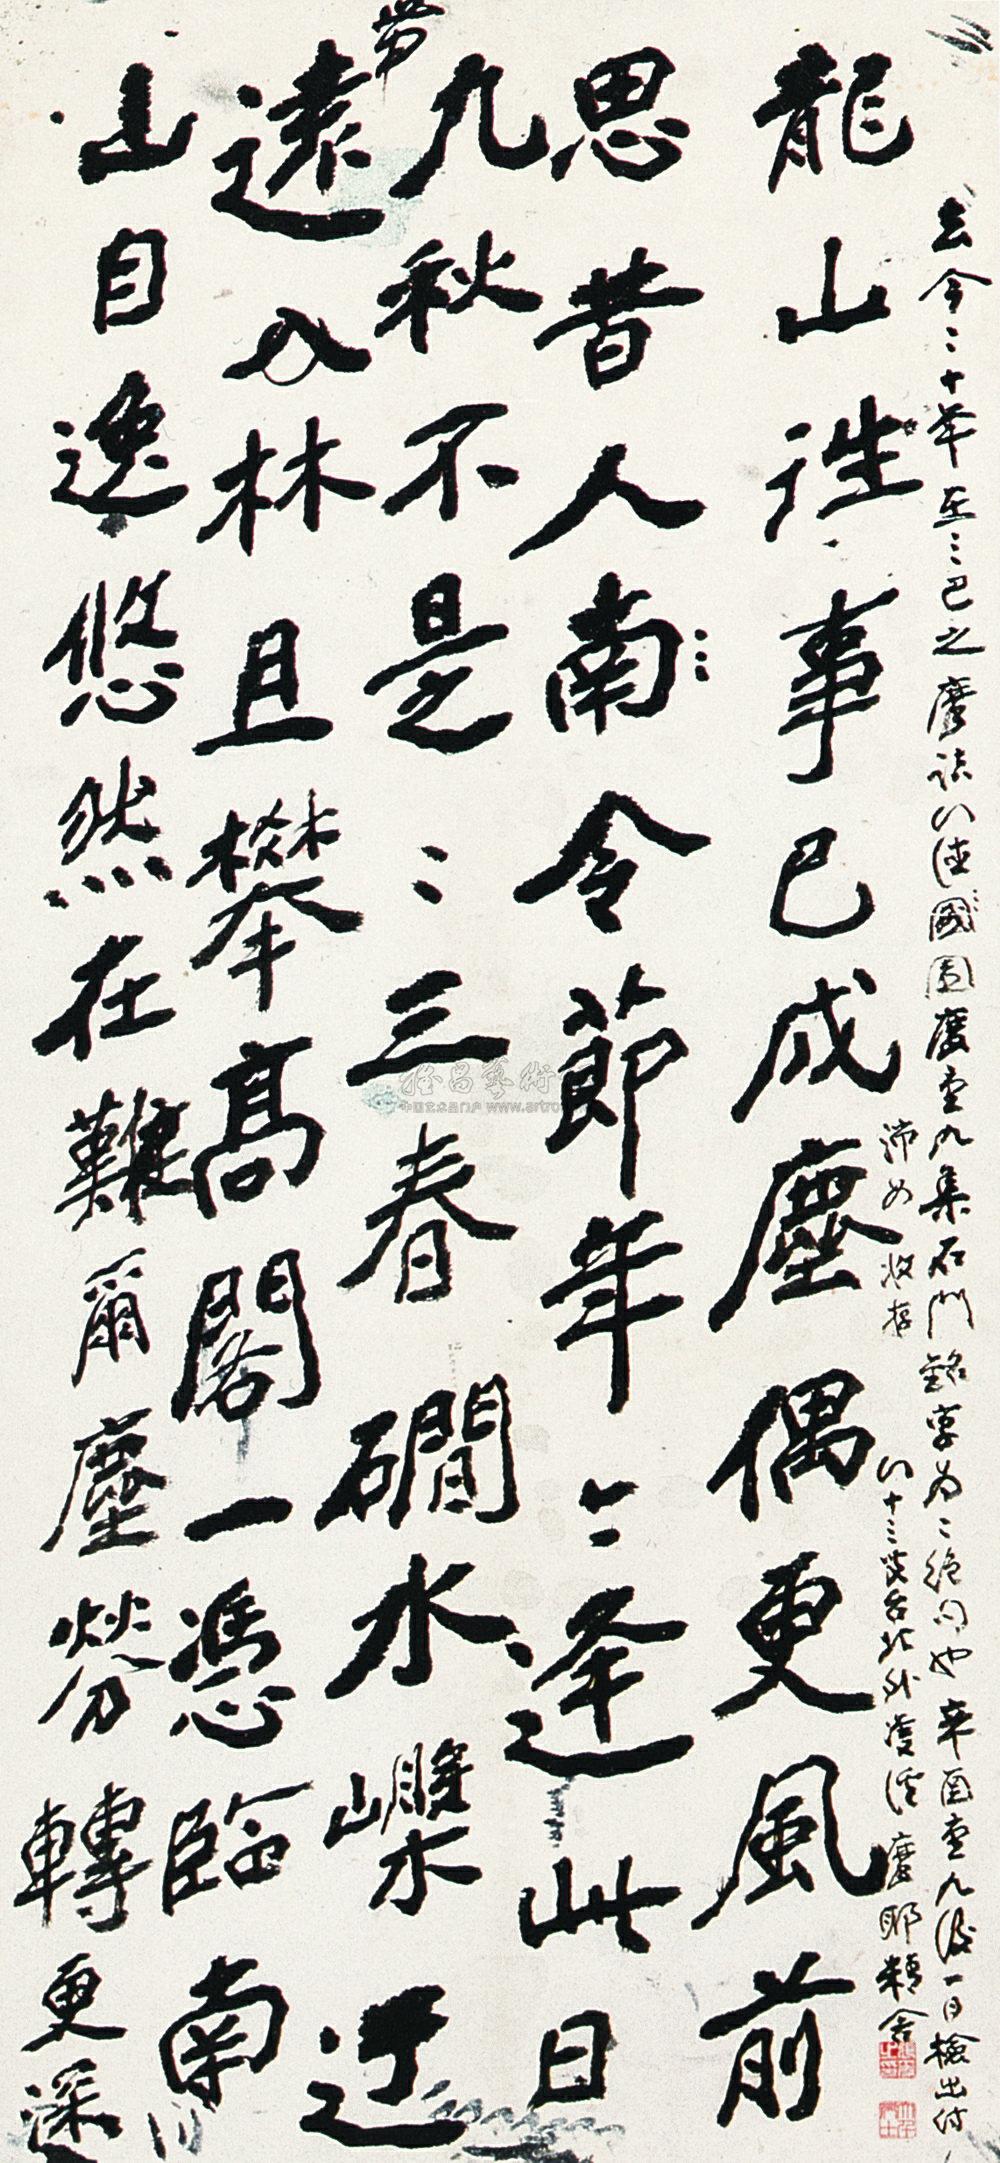 龍山往事已成塵偶更風前
思昔人南令節年〻逢此日
九秋不是〻三春磵水㠜迂
帶
遠入林且攀高閣一憑臨南
山自逸悠然在難爾塵勞轉更深
去今二十年至
之摩詰
園
重九集石門銘字為二絕句也辛酉重九後一日檢出付
沛
收存
八十二叟台北外雙溪摩耶精舍